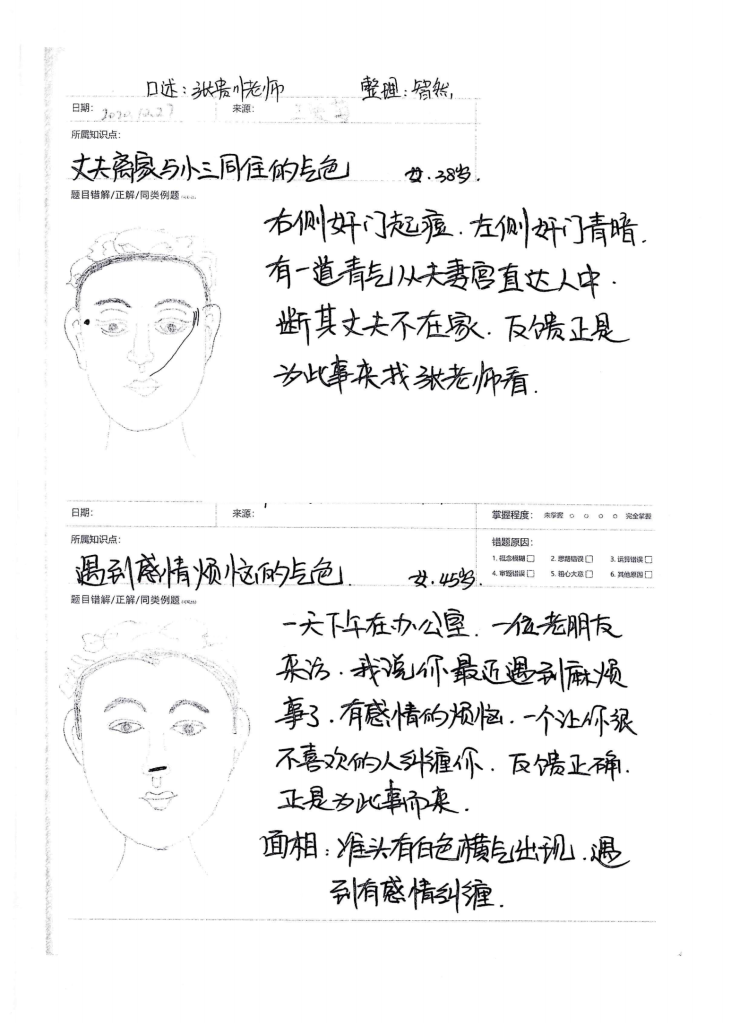 口述：张贵川老师 整理：智然
日期： 2020.10.27 来源：
所属知识点：
丈夫离家与小三同住的气色 女.38岁.
题目错解/正解/同类例题
右侧奸门起痘.左侧奸门青暗.
有一道青气从夫妻宫直达人中.
断其丈夫不在家.反馈正是
为此事来找张老师看.
日期： 来源： 掌握程度： 未掌握 ○ ○ ○ ○ 完全掌握
所属知识点： 错题原因：
1. 概念模糊□ 2. 思路错误□ 3. 运算错误□
遇到感情烦恼的气色. 女.45岁. 4. 审题错误□ 5. 粗心大意□ 6. 其他原因□
题目错解/正解/同类例题
一天下午在办公室.一位老朋友
来访.我说你最近遇到麻烦
事了.有感情的烦恼.一个让你很
不喜欢的人纠缠你.反馈正确.
正是为此事而来.
面相：准头有白色横气出现.遇
到有感情纠缠.